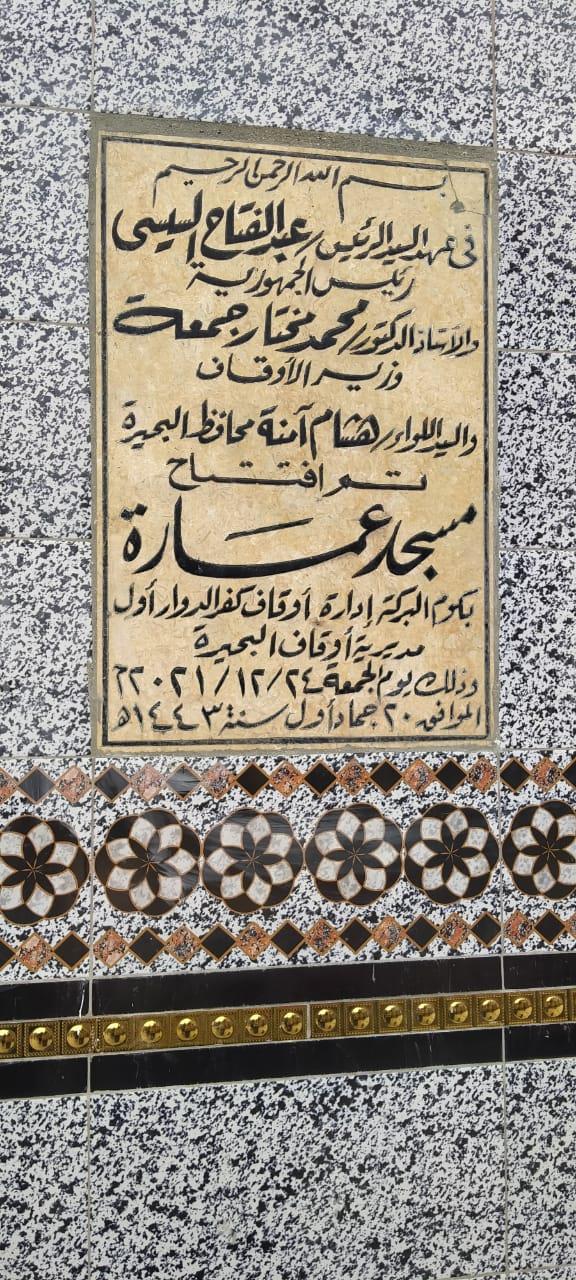 بسم الله الرحمن الرحيم
فى عهد السيد الرئيس/ عبد الفتاح السيسى
رئيس الجمهورية
والأستاذ الدكتور/ محمد مختار جمعة
وزير الأوقاف
والسيد اللواء/ هشام آمنة محافظ البحيرة
تم افتتاح
مسجد عمارة
بكوم البركة إدارة أوقاف كفر الدوار أول
مديرية أوقاف البحيرة
وذلك يوم الجمعة ٢٤/١٢/٢٠٢١م
الموافق ٢٠ جماد أول سنة ١٤٤٣هـ